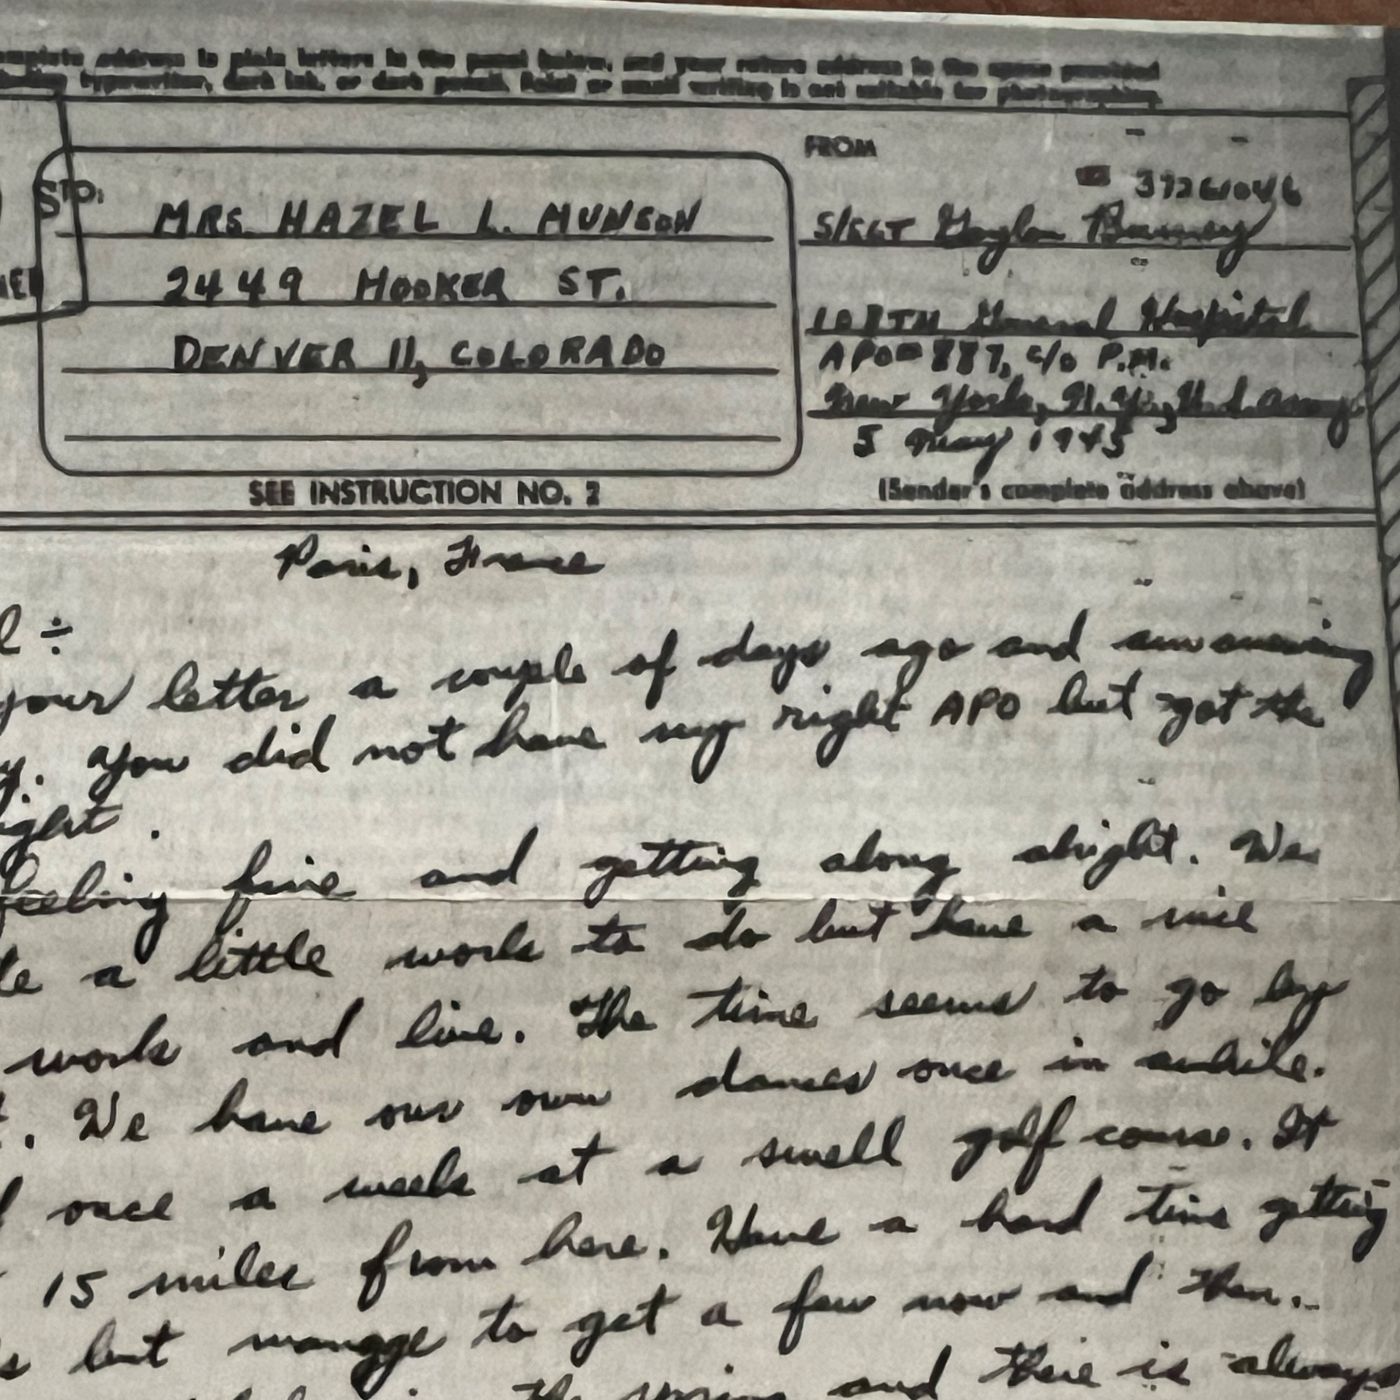 complete address in plain letters in the panel below, and your return address in the space provided
typewriter, dark ink, or dark pencil. Faint or small writing is not suitable for photographing.
FROM
TO:
39261046
MRS. HAZEL L. MUNSON
S/SGT Gaylon
2449 HOOKER ST.
108TH General Hospital
DENVER 11, COLORADO
APO 887, c/o P.M.
New York, N.Y., U.S. Army
5 May 1945
SEE INSTRUCTION NO. 2
(Sender's complete address above)
Paris, France
your letter a couple of days ago and am
You did not have my right APO but got the
feeling fine and getting along alright. We
a little work to do but have a nice
work and live. The time seems to go by
We have our own dances once in awhile.
once a week at a swell golf course. It
15 miles from here. Have a hard time getting
but mangge to get a few now and then.
The spring and there is always